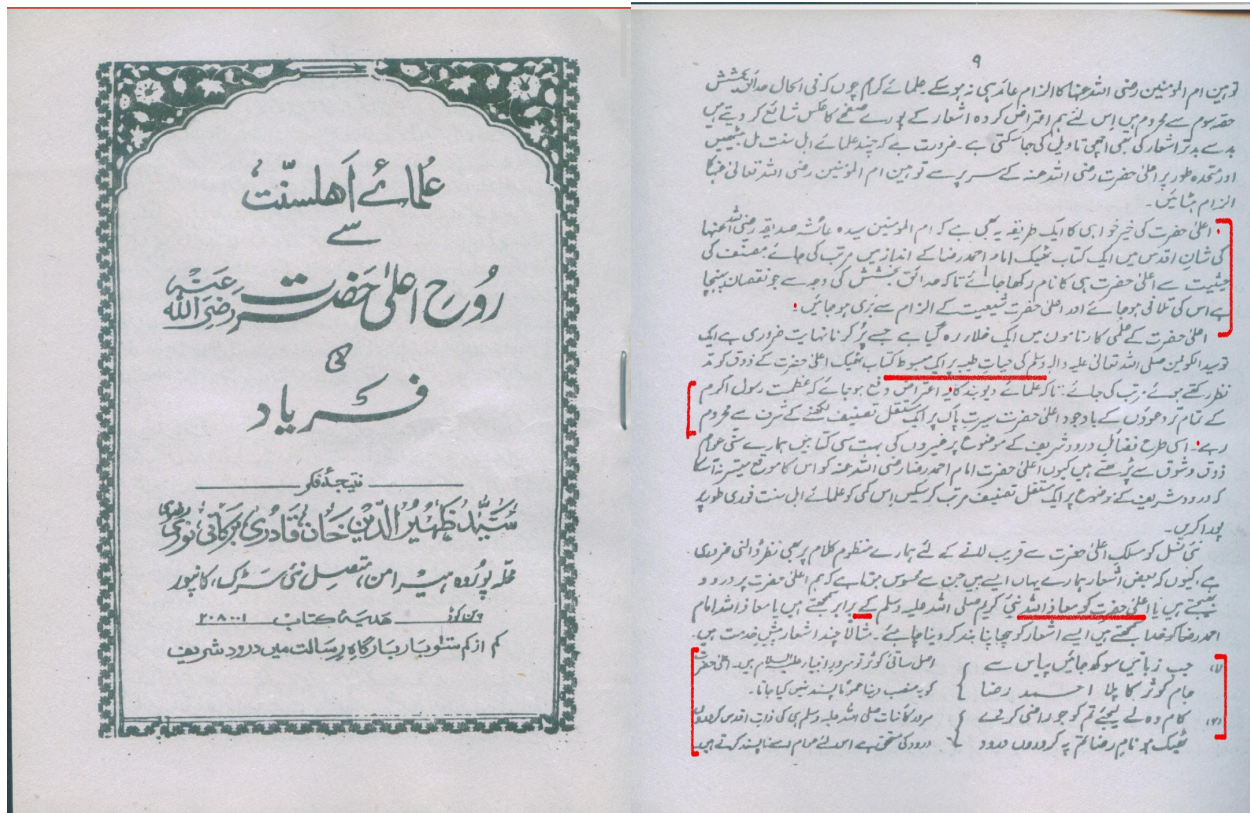 عُلمائے اَھلسنّت
سے
رُوح اعلیٰ حَضرت رَضِیَ اللہ عَنہ
کی
فریاد
نتیجۂ فکر
سیّد ظہیر الدین خان قادری برکاتی نوری رضوی
محلہ پوروہ ہیرامن، متصل نئی سڑک، کانپور
ھدیۂ کتاب ۲۰۸۰۰۱
کم از کم سَو بار بارگاہِ رسالت میں درود شریف
۹
توہین ام المومنین رضی اللہ عنہا کا الزام عائد ہی نہ ہو سکے علمائے کرام چوں کہ فی الحال حدائق بخشش
حصہ سوم سے محروم ہیں اس لئے ہم اعتراض کردہ اشعار کے پورے صفحے کا عکس شائع کر دیتے ہیں
بد سے بدتر اشعار کی بھی اچھی تاویل کی جا سکتی ہے۔ ضرورت ہے کہ چند علمائے اہل سنت مل بیٹھیں
اور متحدہ طور پر اعلیٰ حضرت رضی اللہ عنہ کے سر پر سے توہین ام المومنین رضی اللہ تعالیٰ عنہا کا
الزام ہٹائیں۔
اعلیٰ حضرت کی خیر خواہی کا ایک طریقہ یہ بھی ہے کہ ام المومنین سیدہ عائشہ صدیقہ رضی اللہ عنہا
کی شان اقدس میں ایک کتاب ٹھیک امام احمد رضا کے انداز میں مرتب کی جائے۔ مصنف کی
حیثیت سے اعلیٰ حضرت ہی کا نام رکھا جائے تاکہ حدائق بخشش کی وجہ سے جو نقصان پہنچا
ہے اس کی تلافی ہو جائے اور اعلیٰ حضرت شیعیت کے الزام سے بَری ہو جائیں۔
اعلیٰ حضرت کے علمی کارناموں میں ایک خلا رہ گیا ہے جسے پُر کرنا نہایت ضروری ہے ایک
تو سید الکونین صلی اللہ تعالیٰ علیہ والہ وسلم کی حیات طیبہ پر ایک مبسوط کتاب ٹھیک اعلیٰ حضرت کے ذوق کو مد
نظر رکھتے ہوئے مرتب کی جائے۔ تاکہ علمائے دیوبند کا یہ اعتراض دفع ہو جائے کہ عظمت رسول اکرم
کے تمام تر دعووں کے باوجود اعلیٰ حضرت سیرت پاک پر ایک مستقل تصنیف لکھنے کے شرف سے محروم
رہے۔ اسی طرح فضائل درود شریف کے موضوع پر غیروں کی بہت سی کتابیں ہمارے سنی عوام
ذوق و شوق سے پڑھتے ہیں کیوں اعلیٰ حضرت امام احمد رضا رضی اللہ عنہ کو اس کا موقع میسر نہ آسکا
کہ درود شریف کے موضوع پر ایک مستقل تصنیف مرتب کر سکیں اس کمی کو علمائے اہل سنت فوری طور پر
پورا کریں۔
نئی نسل کو مسلک اعلیٰ حضرت سے قریب لانے کے لئے ہمارے منظوم کلام پر بھی نظر ڈالنی ضروری
ہے، کیوں کہ بعض اشعار ہمارے یہاں ایسے ہیں جن سے محسوس ہوتا ہے کہ ہم اعلیٰ حضرت پر درود
بھیجتے ہیں یا اعلیٰ حضرت کو معاذ اللہ نبی کریم صلی اللہ علیہ وسلم کے برابر سمجھتے ہیں یا معاذ اللہ امام
احمد رضا کو خدا سمجھتے ہیں ایسے اشعار کو چھاپنا بند کر دینا چاہئے۔ مثالاً چند اشعار پیش خدمت ہیں۔
(۱) جب زبانیں سوکھ جائیں پیاس سے
جام کوثر کا پلا احمد رضا
اصل ساقی کوثر تو سرور انبیاء علیہ السلام ہیں۔ اعلیٰ حضرت
کو یہ منصب دینا عموماً پسند نہیں کیا جاتا۔
(۲) کام وہ لے لیجئے تم کو جو راضی کرے
ٹھیک ہو نام رضا تم پہ کروروں درود
سرور کائنات صلی اللہ علیہ وسلم ہی کی ذات اقدس کروروں
درود کی مستحق ہے اس لئے عوام اسے ناپسند کرتے ہیں